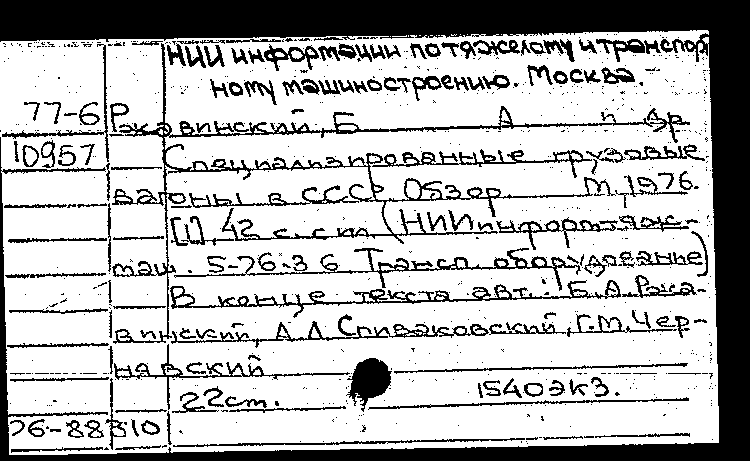 НИИ информации по тяжелому и транспорт
ному машиностроению. Москва.
77-6 Ржавинский, Б А и др
10957 Специализированные грузовые
вагоны в СССР Обзор М, 1976.
[1], 42 с. с ил (НИИинформтяж-
маш. 5-76-36 Трансп оборудование)
В конце текста авт.: Б.А. Ржа-
винский, А Л Спиваковский, Г.М. Чер-
нявский
22 см. 1540 экз.
76-88310